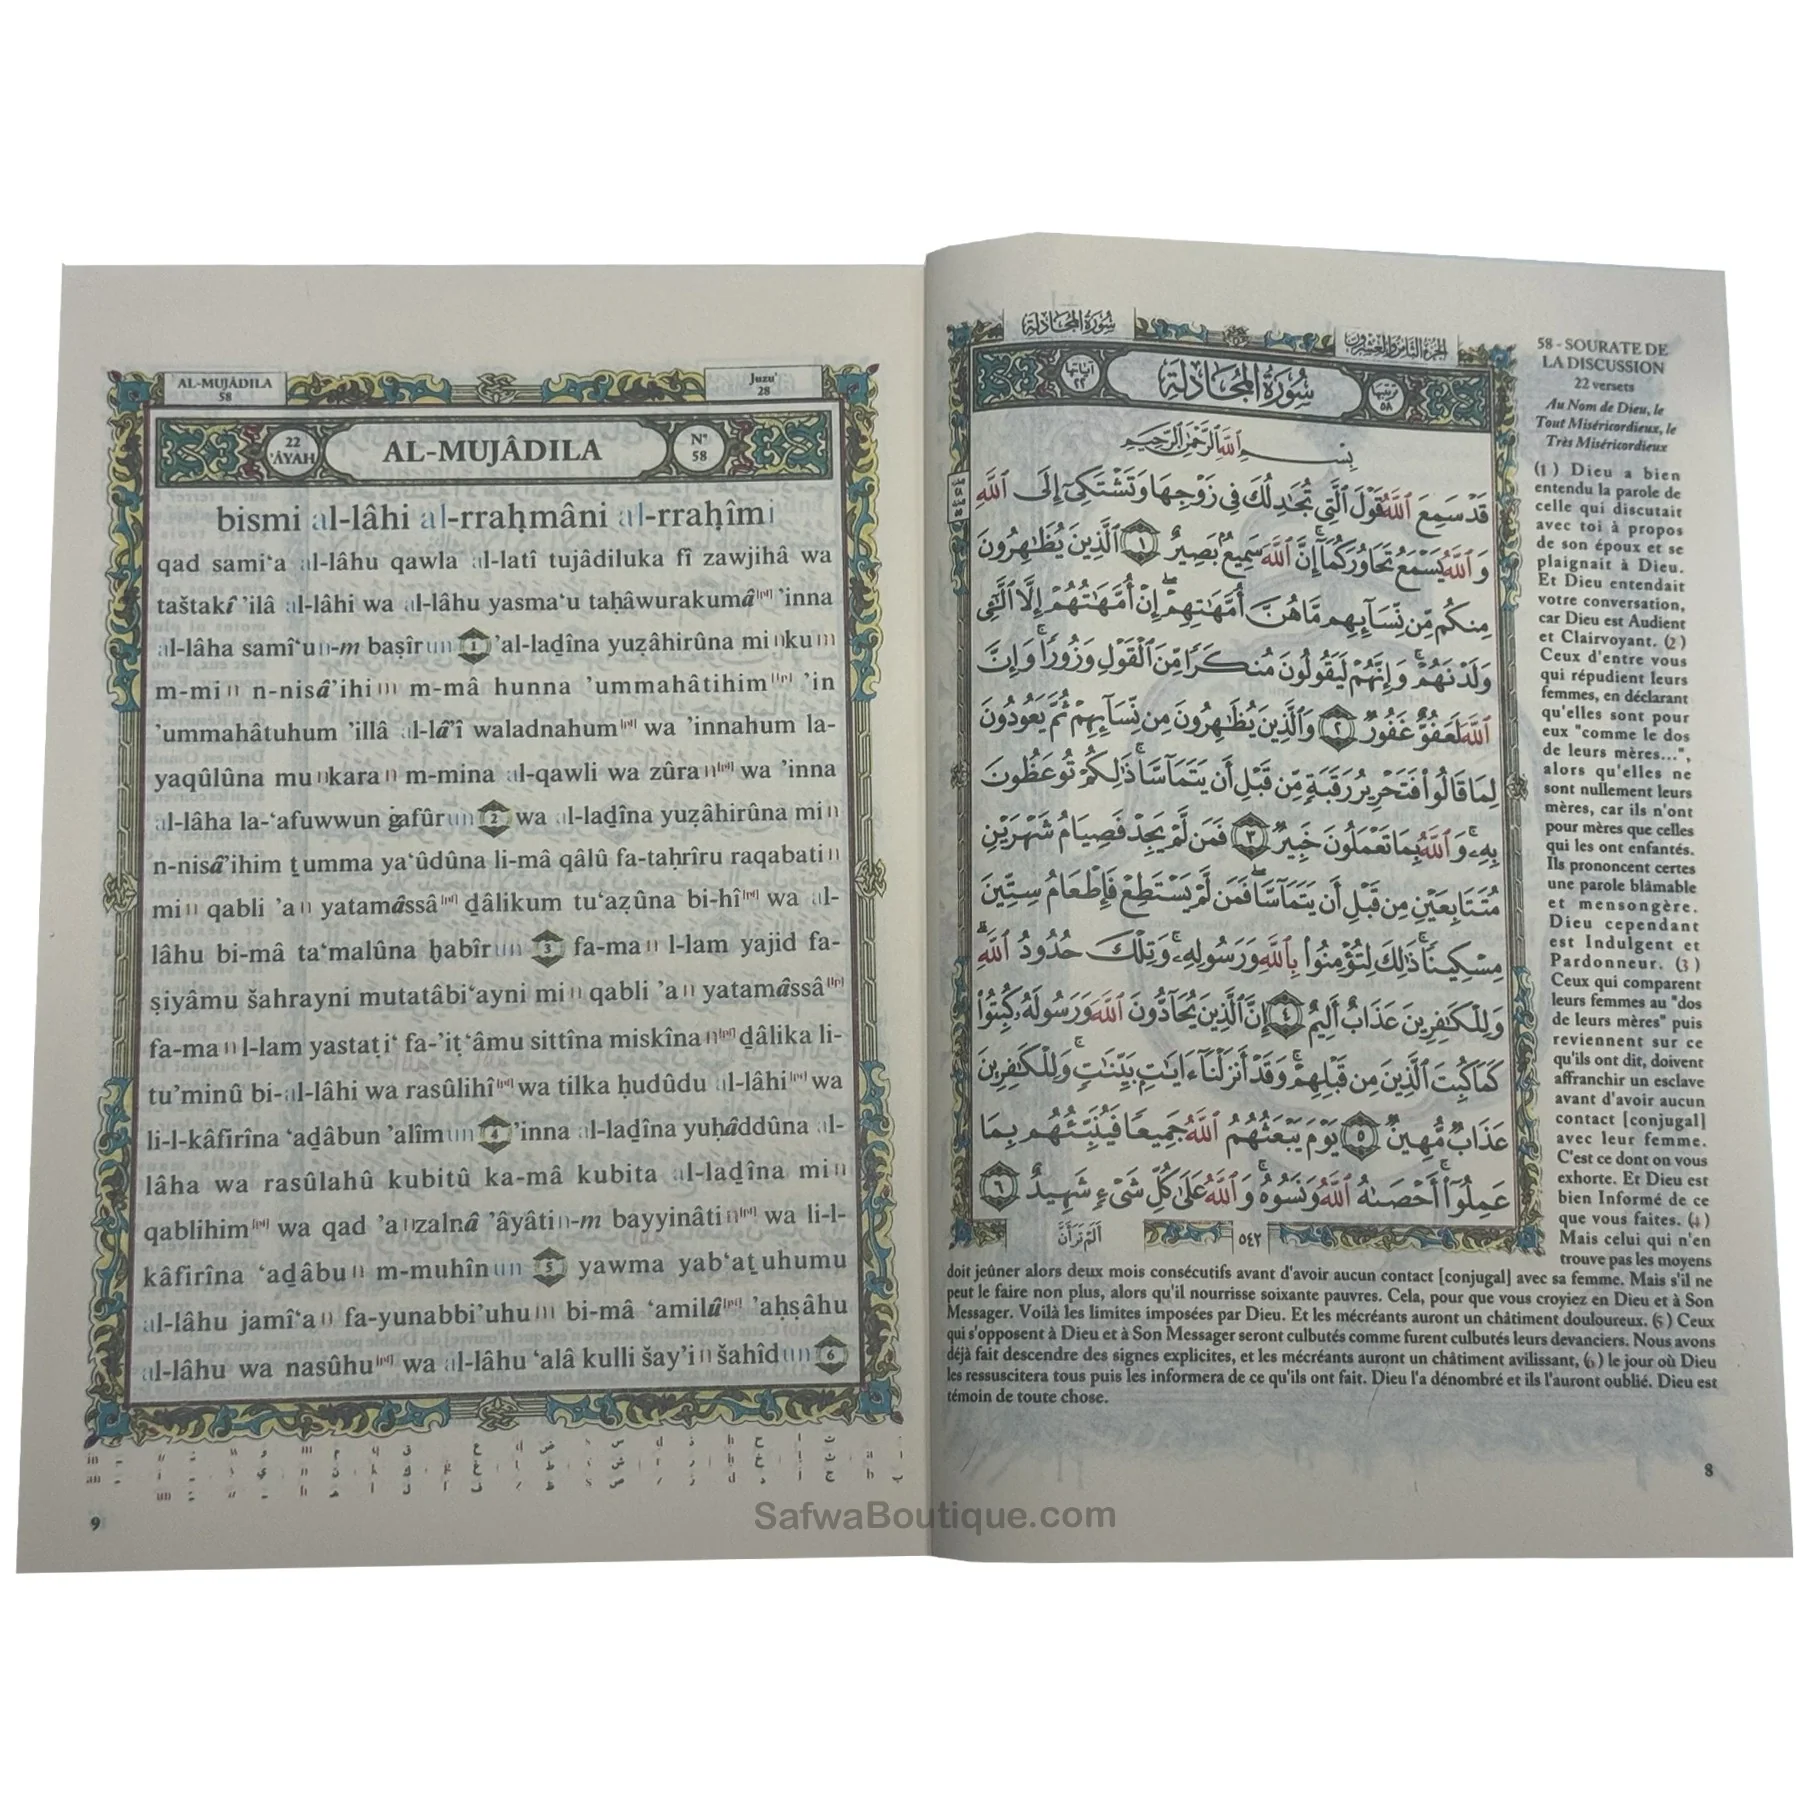 AL-MUJÂDILA
58
Juzu'
28
22
'ÂYAH
AL-MUJÂDILA
N°
58
bismi al-lâhi al-rraḥmâni al-rraḥîmi
qad sami‘a al-lâhu qawla al-latî tujâdiluka fî zawjihâ wa
taštakî ’ilâ al-lâhi wa al-lâhu yasma‘u taḥâwurakumâ ’inna
al-lâha samî‘un-m baṣîrun 1 ’al-laḏîna yuẓâhirûna minkum
m-min n-nisâ’ihim m-mâ hunna ’ummahâtihim ’in
’ummahâtuhum ’illâ al-lâ’î waladnahum wa ’innahum la-
yaqûlûna munkaran m-mina al-qawli wa zûran wa ’inna
al-lâha la-‘afuwwun ġafûrun 2 wa al-laḏîna yuẓâhirûna min
n-nisâ’ihim ṯumma ya‘ûdûna li-mâ qâlû fa-taḥrîru raqabatin
min qabli ’an yatamâssâ ḏâlikum tu‘aẓûna bi-hî wa al-
lâhu bi-mâ ta‘malûna ḫabîrun 3 fa-man l-lam yajid fa-
ṣiyâmu šahrayni mutatâbi‘ayni min qabli ’an yatamâssâ
fa-man l-lam yastaṭi‘ fa-’iṭ‘âmu sittîna miskînan ḏâlika li-
tu’minû bi-al-lâhi wa rasûlihî wa tilka ḥudûdu al-lâhi wa
li-l-kâfirîna ‘aḏâbun ’alîmun 4 ’inna al-laḏîna yuḥâddûna al-
lâha wa rasûlahû kubitû ka-mâ kubita al-laḏîna min
qablihim wa qad ’anzalnâ ’âyâtin-m bayyinâtin wa li-l-
kâfirîna ‘aḏâbun m-muhînun 5 yawma yab‘aṯuhumu
al-lâhu jamî‘an fa-yunabbi’uhum bi-mâ ‘amilû ’aḥṣâhu
al-lâhu wa nasûhu wa al-lâhu ‘alâ kulli šay’in šahîdun 6
9
سُورَةُ المُجَادلة
الجزء الثامن والعشرون
آياتها
٢٢
سُورَةُ المُجَادلة
ترتيبها
٥٨
بِسْمِ اللَّهِ الرَّحْمَٰنِ الرَّحِيمِ
قَدْ سَمِعَ اللَّهُ قَوْلَ الَّتِي تُجَادِلُكَ فِي زَوْجِهَا وَتَشْتَكِي إِلَى اللَّهِ
وَاللَّهُ يَسْمَعُ تَحَاوُرَكُمَا إِنَّ اللَّهَ سَمِيعٌ بَصِيرٌ ١ الَّذِينَ يُظَاهِرُونَ
مِنكُم مِّن نِّسَائِهِم مَّا هُنَّ أُمَّهَاتِهِمْ إِنْ أُمَّهَاتُهُمْ إِلَّا اللَّائِي
وَلَدْنَهُمْ وَإِنَّهُمْ لَيَقُولُونَ مُنكَرًا مِّنَ الْقَوْلِ وَزُورًا وَإِنَّ
اللَّهَ لَعَفُوٌّ غَفُورٌ ٢ وَالَّذِينَ يُظَاهِرُونَ مِن نِّسَائِهِمْ ثُمَّ يَعُودُونَ
لِمَا قَالُوا فَتَحْرِيرُ رَقَبَةٍ مِّن قَبْلِ أَن يَتَمَاسَّا ذَٰلِكُمْ تُوعَظُونَ
بِهِ وَاللَّهُ بِمَا تَعْمَلُونَ خَبِيرٌ ٣ فَمَن لَّمْ يَجِدْ فَصِيَامُ شَهْرَيْنِ
مُتَتَابِعَيْنِ مِن قَبْلِ أَن يَتَمَاسَّا فَمَن لَّمْ يَسْتَطِعْ فَإِطْعَامُ سِتِّينَ
مِسْكِينًا ذَٰلِكَ لِتُؤْمِنُوا بِاللَّهِ وَرَسُولِهِ وَتِلْكَ حُدُودُ اللَّهِ
وَلِلْكَافِرِينَ عَذَابٌ أَلِيمٌ ٤ إِنَّ الَّذِينَ يُحَادُّونَ اللَّهَ وَرَسُولَهُ كُبِتُوا
كَمَا كُبِتَ الَّذِينَ مِن قَبْلِهِمْ وَقَدْ أَنزَلْنَا آيَاتٍ بَيِّنَاتٍ وَلِلْكَافِرِينَ
عَذَابٌ مُّهِينٌ ٥ يَوْمَ يَبْعَثُهُمُ اللَّهُ جَمِيعًا فَيُنَبِّئُهُم بِمَا
عَمِلُوا أَحْصَاهُ اللَّهُ وَنَسُوهُ وَاللَّهُ عَلَىٰ كُلِّ شَيْءٍ شَهِيدٌ ٦
أَلَمْ تَرَ أَنَّ
٥٤٢
58 - SOURATE DE
LA DISCUSSION
22 versets
Au Nom de Dieu, le
Tout Miséricordieux, le
Très Miséricordieux
(1) Dieu a bien
entendu la parole de
celle qui discutait
avec toi à propos
de son époux et se
plaignait à Dieu.
Et Dieu entendait
votre conversation,
car Dieu est Audient
et Clairvoyant. (2)
Ceux d'entre vous
qui répudient leurs
femmes, en déclarant
qu'elles sont pour
eux "comme le dos
de leurs mères...",
alors qu'elles ne
sont nullement leurs
mères, car ils n'ont
pour mères que celles
qui les ont enfantés.
Ils prononcent certes
une parole blâmable
et mensongère.
Dieu cependant
est Indulgent et
Pardonneur. (3)
Ceux qui comparent
leurs femmes au "dos
de leurs mères" puis
reviennent sur ce
qu'ils ont dit, doivent
affranchir un esclave
avant d'avoir aucun
contact [conjugal]
avec leur femme.
C'est ce dont on vous
exhorte. Et Dieu est
bien Informé de ce
que vous faites. (4)
Mais celui qui n'en
trouve pas les moyens
doit jeûner alors deux mois consécutifs avant d'avoir aucun contact [conjugal] avec sa femme. Mais s'il ne
peut le faire non plus, alors qu'il nourrisse soixante pauvres. Cela, pour que vous croyiez en Dieu et à Son
Messager. Voilà les limites imposées par Dieu. Et les mécréants auront un châtiment douloureux. (5) Ceux
qui s'opposent à Dieu et à Son Messager seront culbutés comme furent culbutés leurs devanciers. Nous avons
déjà fait descendre des signes explicites, et les mécréants auront un châtiment avilissant, (6) le jour où Dieu
les ressuscitera tous puis les informera de ce qu'ils ont fait. Dieu l'a dénombré et ils l'auront oublié. Dieu est
témoin de toute chose.
8
SafwaBoutique.com